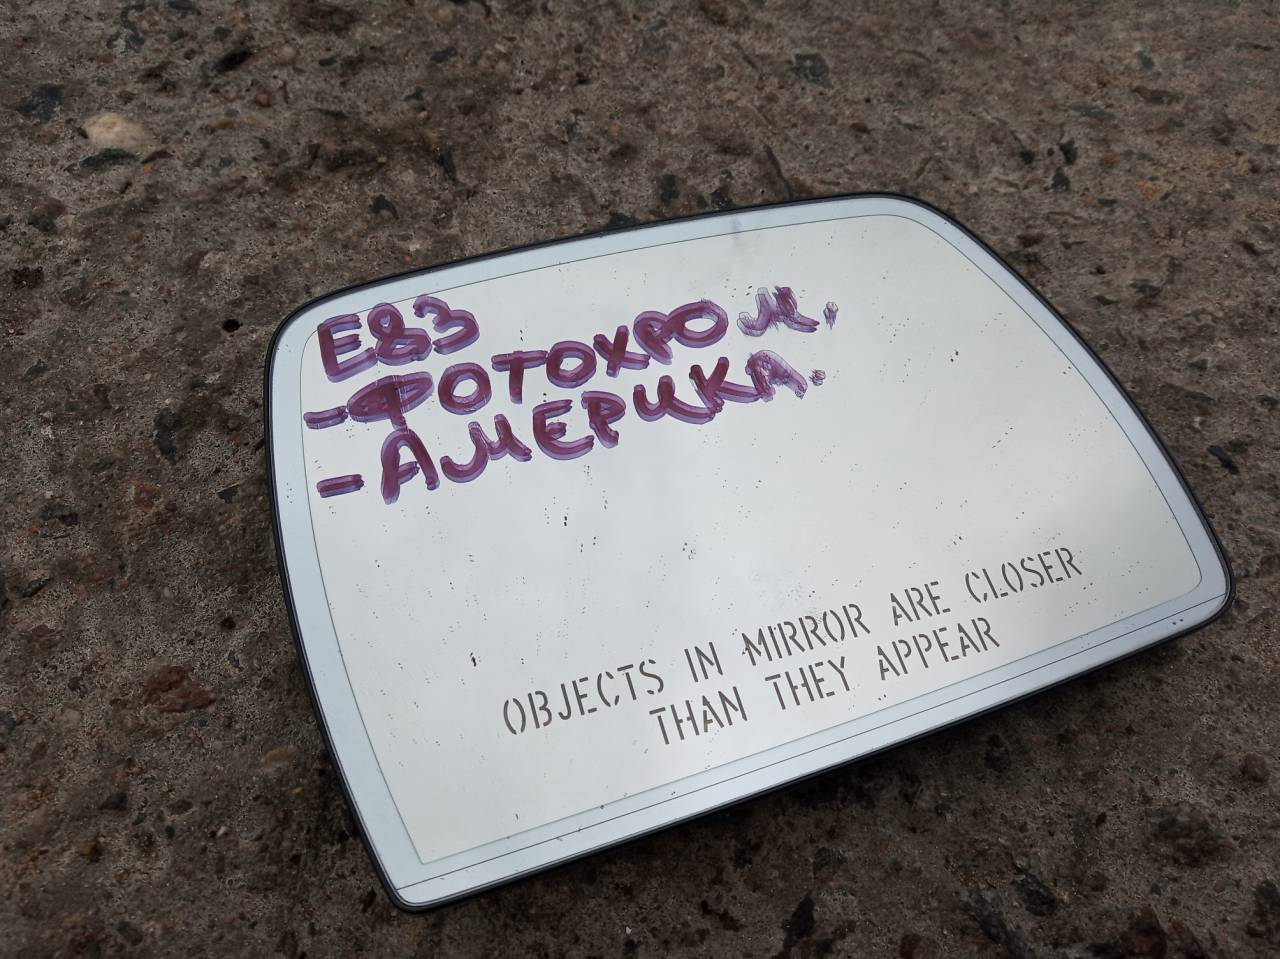 E83
-ФОТОХРОМ.
-АМЕРИКА.
OBJECTS IN MIRROR ARE CLOSER
THAN THEY APPEAR